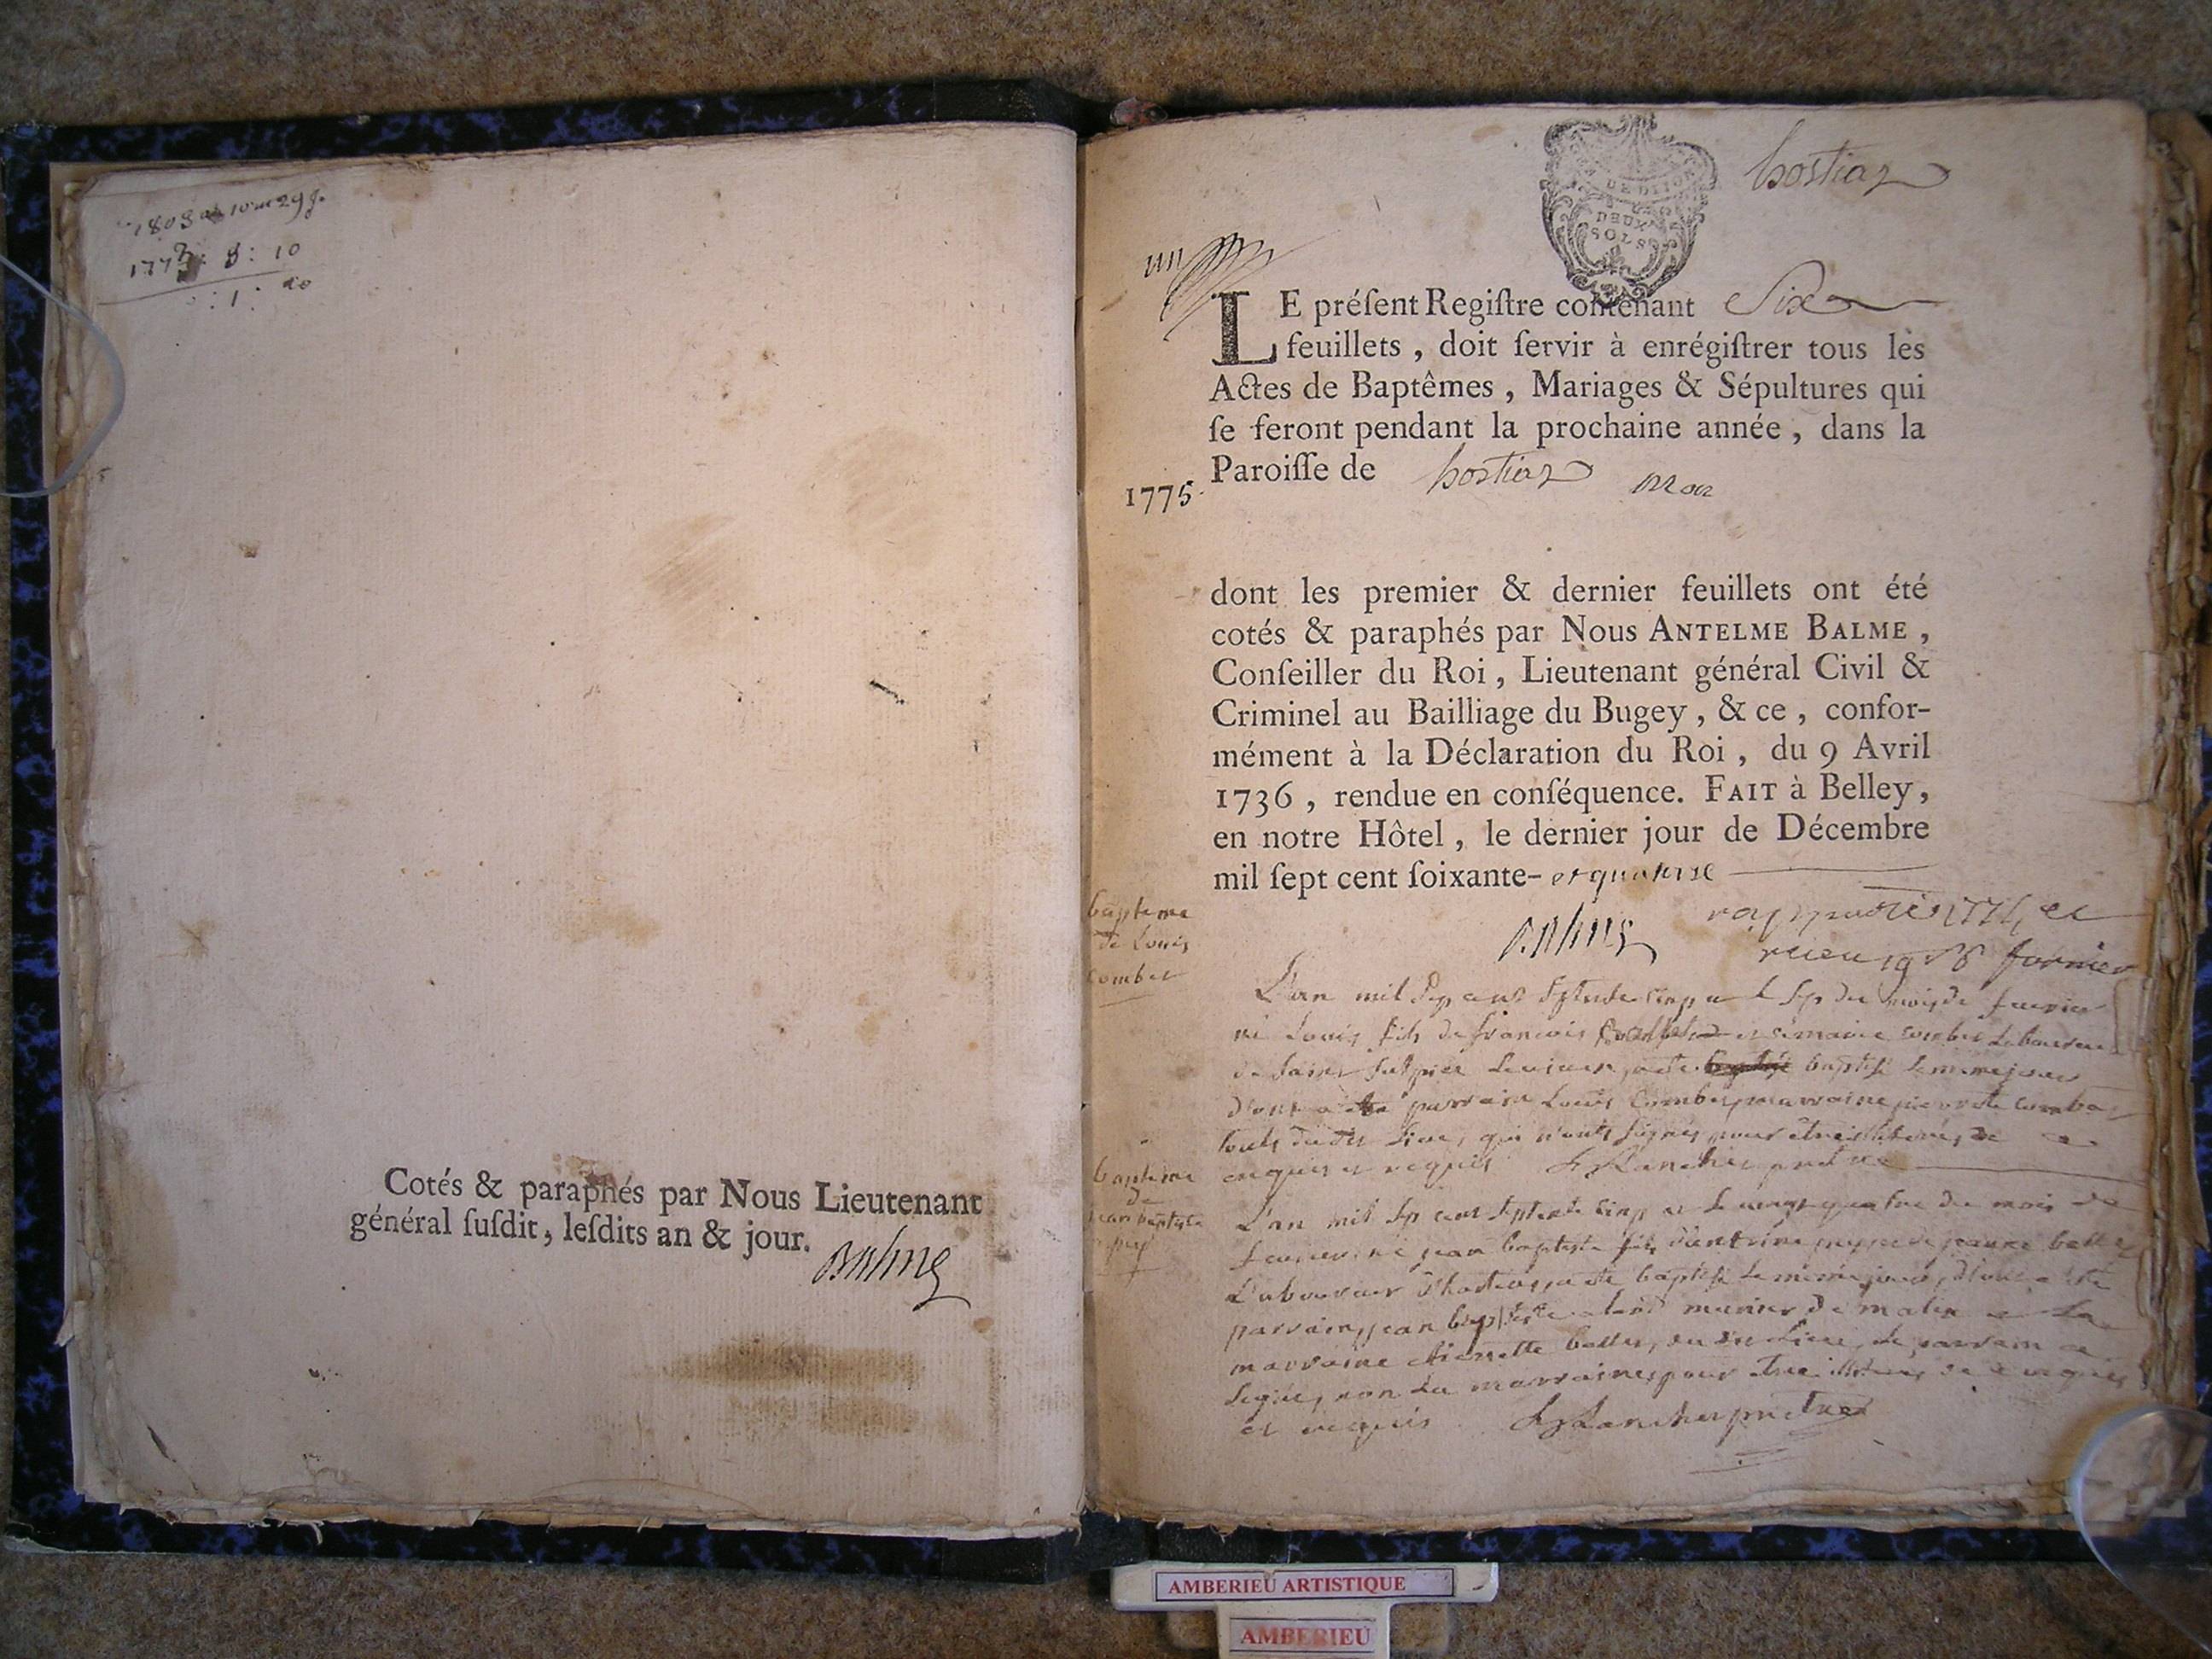 1773 : 8 : 10
: 1 : 20
Cotés & paraphés par Nous Lieutenant
général ſuſdit, leſdits an & jour.
Balme
DE DIJON
DEUX
SOLS
hostiaz
un
LE préſent Regiſtre contenant Six
feuillets , doit ſervir à enrégiſtrer tous les
Actes de Baptêmes , Mariages & Sépultures qui
ſe feront pendant la prochaine année , dans la
Paroiſſe de hostiaz
1775.
dont les premier & dernier feuillets ont été
cotés & paraphés par Nous ANTELME BALME ,
Conſeiller du Roi , Lieutenant général Civil &
Criminel au Bailliage du Bugey , & ce , confor-
mément à la Déclaration du Roi , du 9 Avril
1736 , rendue en conſéquence. FAIT à Belley ,
en notre Hôtel , le dernier jour de Décembre
mil ſept cent ſoixante- et quatorze
Balme
fournier
bapteme
de Louis
combet
L'an mil sep cent septente cinq et le sep du mois de fevrier
né Louis fils de francois et combet Laboureur
de saint sulpice a ete baptisé le meme jour
parrain Louis Combet marraine pierrette combet
touts dudit Lieu, qui n'onts signés pour être illiterés de ce
enquis et requis Lancher pretre
bapteme
de
jean baptiste
L'an mil sep cent septente cinq et le vingt quatre du mois de
fevrier né jean baptiste fils d'antoine et de jeanne bellet
Laboureur d'hostiaz, a ete baptisé le meme jour, dont a été
parrain, jean baptiste munier de matin et La
marraine pierrette bellet, du dit Lieu, Le parrain a
signé, non La marraine, pour etre illiterée de ce enquis
et requis Lancher pretre
AMBERIEU ARTISTIQUE
AMBERIEU